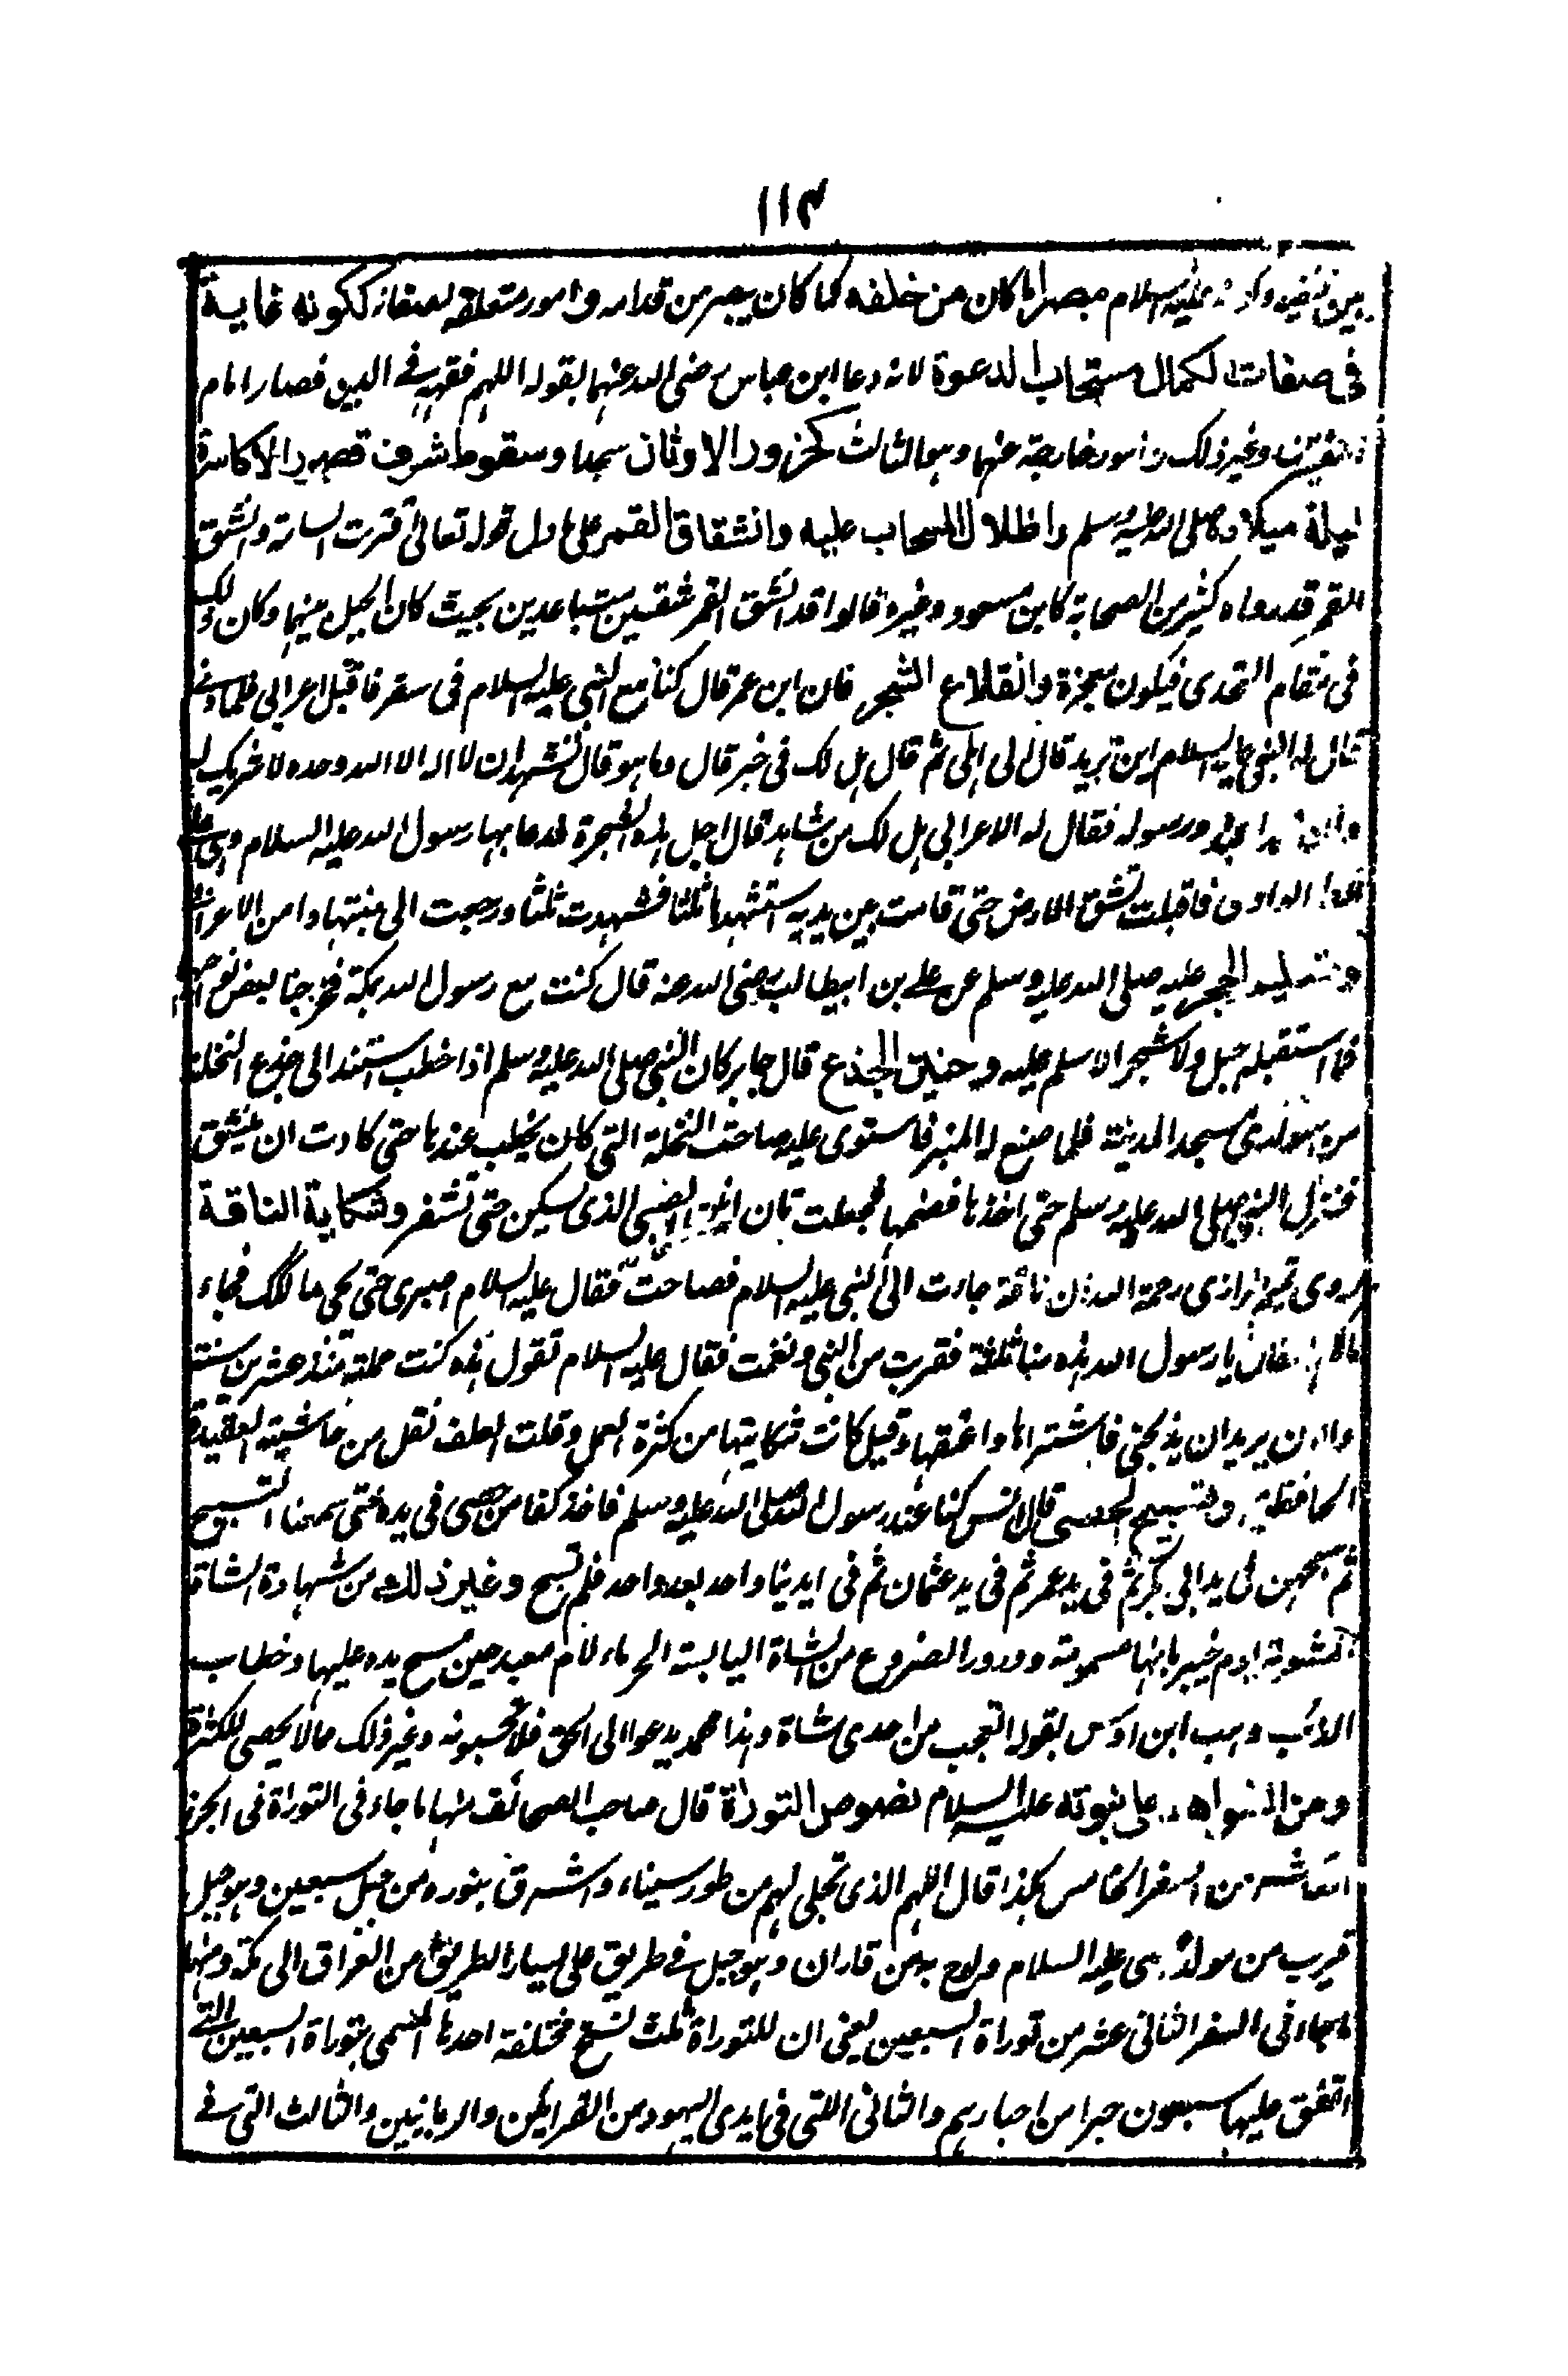 ١١٣
بين كتفيه وكونه عليه السلام مبصرا لما كان من خلفه كما كان يبصر من قدامه وامور متعلقة بصفاته ككونه غاية
فى صفات الكمال مستجاب الدعوة لانه دعا ابن عباس رضى الله عنهما بقوله اللهم فقهه فى الدين فصار امام
وغير ذلك وامور خارجة عنها وهو الثالث كخرور الاوثان سجدا وسقوط شرف قصور الاكاسرة
ليلة ميلاده صلى الله عليه وسلم واظلال السحاب عليه وانشقاق القمر على ما دل قوله تعالى اقتربت الساعة وانشق
القمر قد رواه كثير من الصحابة كابن مسعود وغيره قالوا قد انشق القمر شقتين متباعدين بحيث كان الجبل بينهما وكان ذلك
فى مقام التحدى فيكون معجزة وانقلاع الشجر فان ابن عمر قال كنا مع النبى عليه السلام فى سفر فاقبل اعرابى فلما دنى
قال له النبى عليه السلام اين تريد قال الى اهلى ثم قال هل لك فى خير قال وما هو قال تشهد ان لا اله الا الله وحده لا شريك له
وان محمدا عبده ورسوله فقال له الاعرابى هل لك من شاهد قال اجل هذه الشجرة فدعا بها رسول الله عليه السلام وهى على
الوادى فاقبلت تشق الارض حتى قامت بين يديه استشهدها ثلثا فشهدت ثلثا ورجعت الى منبتها وامن الاعرابى
وتسليم الحجر عليه صلى الله عليه وسلم عن على بن ابيطالب رضى الله عنه قال كنت مع رسول الله بمكة فخرجنا بعض نواحيها
فما استقبله جبل ولا شجر الا سلم عليه وحنين الجذع قال جابر كان النبى صلى الله عليه وسلم اذا خطب استند الى جذع النخلة
من سوارى مسجد المدينة فلما صنع له المنبر فاستوى عليه صاحت النخلة التى كان يخطب عندها حتى كادت ان ينشق
فنزل النبى صلى الله عليه وسلم حتى اخذها فضمها فجعلت تان انين الصبى الذى يسكن حتى تشفر وشكاية الناقة
روى رحمه الله ان ناقة جاءت الى النبى عليه السلام فصاحت فقال عليه السلام اصبرى حتى يجى مالكك فجاء
مالكها فقال يا رسول الله هذه فقربت من النبى ونغمت فقال عليه السلام تقول هذه كنت حملة منذ عشرين سنة
والان يريد ان يذبحنى فاشتراها واعتقها وقيل كانت شكايتها من كثرة العمل وقلت العلف نقل من حاشيته العقيدة
الحافظية وتسبيح الحصى قال انس كنا عند رسول الله صلى الله عليه وسلم فاخذ كفا من حصى فى يده حتى سمعنا التسبيح
ثم سبحن فى يد ابى بكر ثم فى يد عمر ثم فى يد عثمان ثم فى ايدينا واحد بعد واحد فلم تسبح وغير ذلك من شهادة الشاة
المشوية يوم خيبر بانها مسمومة ودرور الضروع من الشاة اليابسة الجرماء لام معبد حين مسح يده عليها وخطاب
الذئب وهب ابن اوس بقوله اتعجب من اخدى شاة وهذا محمد يدعوا الى الحق فلا تحسبونه وغير ذلك مما لا يحصى للكثرة
ومن الشواهد على نبوته عليه السلام نصوص التوراة قال صاحب الصحائف منها ما جاء فى التوراة فى الجزء
العاشر من السفر الخامس هكذا قال اللهم الذى تجلى لهم من طور سيناء واشرق بنوره من جبل سبعين وهو جبل
قريب من مولد عيسى عليه السلام ولوح به من فاران وهو جبل فى طريق على يسار الطريق من العراق الى مكة ومنها
ما جاء فى السفر الثانى عشر من توراة السبعين يعنى ان للتوراة ثلث نسخ مختلفة احدها المسمى بتوراة السبعين التى
اتفق عليها سبعون حبرا من احبارهم والثانى اللتى فى ايدى اليهود من القرايئن والربانيين والثالث التى فى